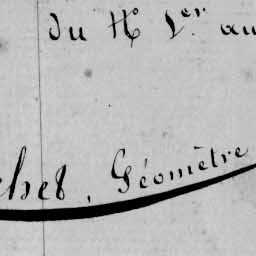 du N° 1er au
chet, Géomètre